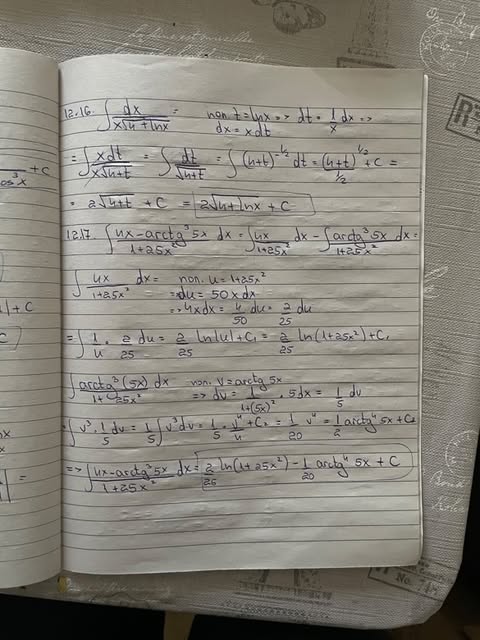 12.16. ∫ dx / x√4+lnx = поп. t = lnx => dt = 1/x dx =>
dx = xdt
= ∫ xdt / x√4+t = ∫ dt / √4+t = ∫ (4+t)^-1/2 dt = (4+t)^1/2 / 1/2 + C =
= 2√4+t + C = 2√4+lnx + C
12.17. ∫ 4x-arctg³5x / 1+25x² dx = ∫ 4x / 1+25x² dx - ∫ arctg³5x / 1+25x² dx =
∫ 4x / 1+25x² dx = поп. u = 1+25x²
=> du = 50xdx
=> 4xdx = 4/50 du = 2/25 du
= ∫ 1/u · 2/25 du = 2/25 ln|u| + C₁ = 2/25 ln(1+25x²) + C₁
∫ arctg³(5x) dx / 1+25x² поп. v = arctg5x
=> dv = 1 / 1+(5x)² · 5dx = 1/5 dv
∫ v³ · 1/5 dv = 1/5 ∫ v³dv = 1/5 · v⁴/4 + C₂ = 1/20 v⁴ = 1/2 arctg⁴5x + C₂
=> ∫ 4x-arctg³5x / 1+25x² dx = 2/25 ln(1+25x²) - 1/20 arctg⁴5x + C
os³x + C
| + C
C
No.